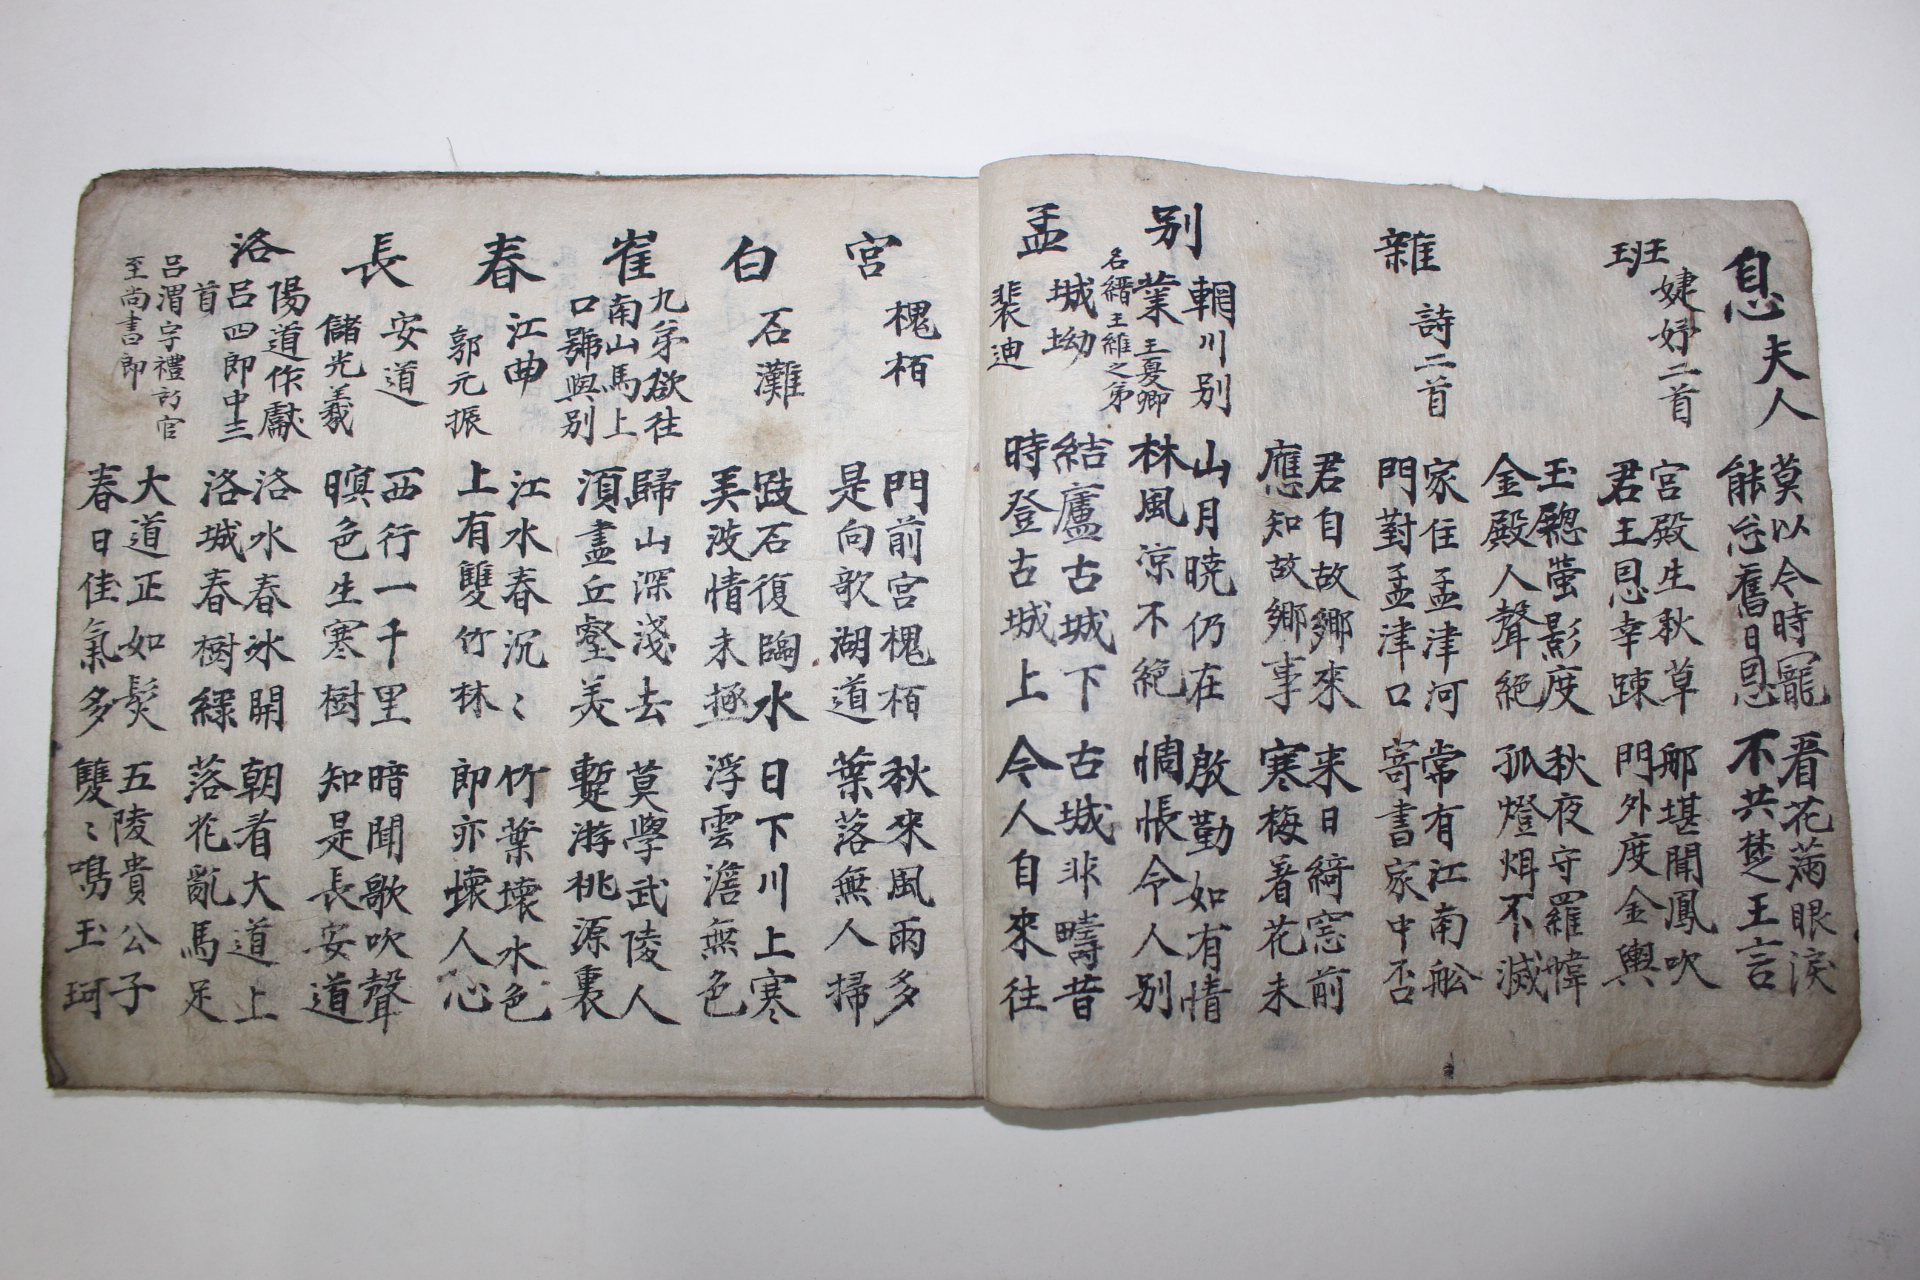 息夫人
莫以今時寵
能忘舊日恩
看花滿眼淚
不共楚王言
班婕妤二首
宮殿生秋草
君王恩幸踈
那堪聞鳳吹
門外度金輿
玉窓螢影度
金殿人聲絶
秋夜守羅幃
孤燈烱不滅
雜詩二首
家住孟津河
門對孟津口
常有江南舩
寄書家中否
君自故鄉來
應知故鄉事
来日綺窓前
寒梅着花未
別輞川別
業王夏卿
名縉王維之弟
山月暁仍在
林風凉不絶
慇勤如有情
惆悵令人別
孟城坳
裴迪
結廬古城下
時登古城上
古城非疇昔
今人自來往
宮槐栢
門前宮槐栢
是向歌湖道
秋來風雨多
葉落無人掃
白石灘
跂石復臨水
美波情未極
日下川上寒
浮雲澹無色
崔九弟欲往
南山馬上
口號與別
歸山深淺去
湏盡丘壑美
莫學武陵人
蹔游桃源裏
春江曲
郭元振
江水春沉〻
上有雙竹林
竹葉壞水色
郎亦壞人心
長安道
儲光羲
西行一千里
暝色生寒樹
暗聞歌吹聲
知是長安道
洛陽道作獻
呂四郎中三
首
呂渭字禮部官
至尚書郎
洛水春氷開
洛城春樹緑
朝看大道上
落花亂馬足
大道正如髮
春日佳氣多
五陵貴公子
雙〻鳴玉珂